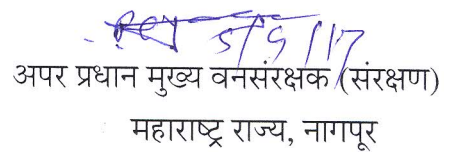 5/9/17
अपर प्रधान मुख्य वनसंरक्षक (संरक्षण)
महाराष्ट्र राज्य, नागपूर